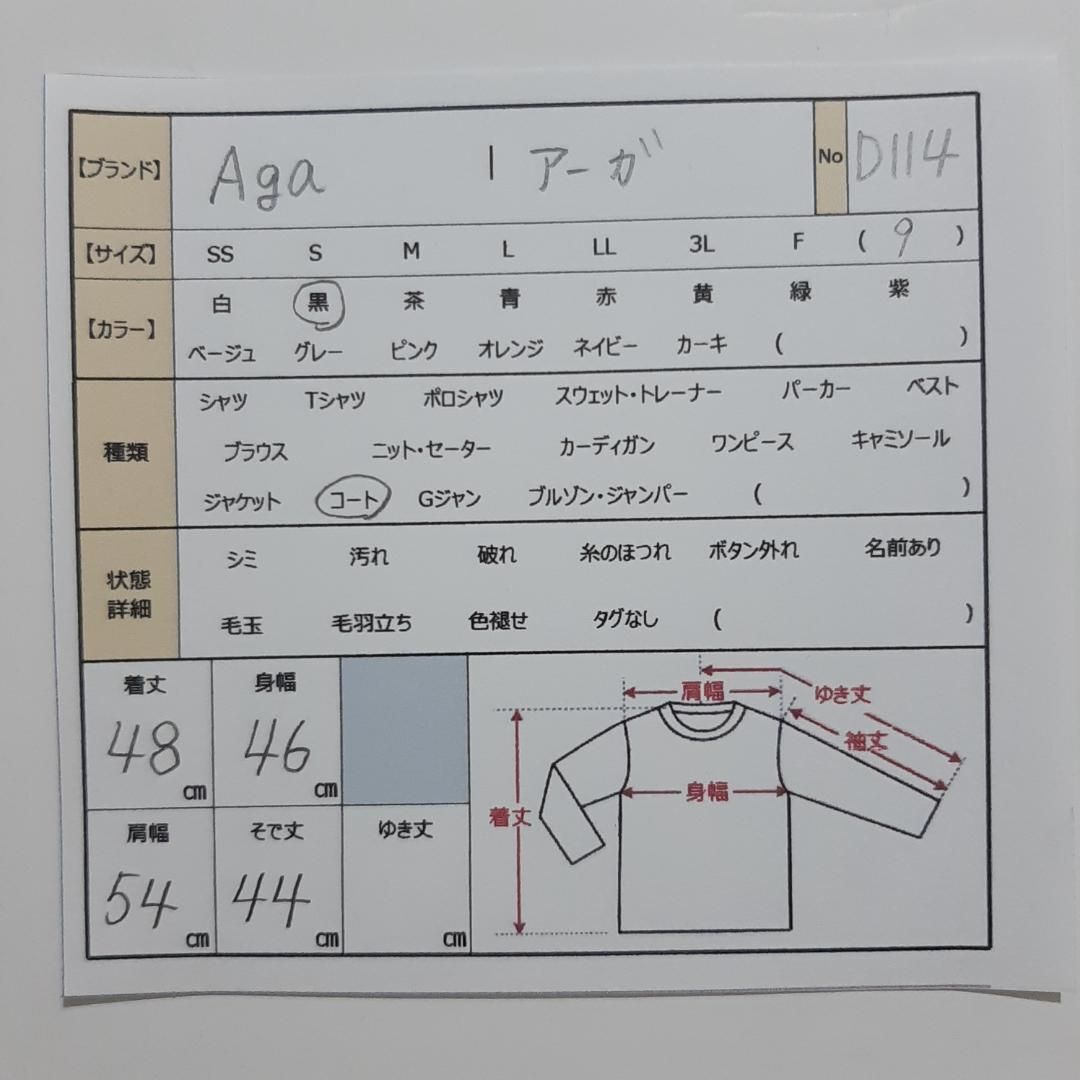 【ブランド】 Aga | アーガ No D114
【サイズ】 SS S M L LL 3L F ( 9 )
【カラー】 白 黒 茶 青 赤 黄 緑 紫
ベージュ グレー ピンク オレンジ ネイビー カーキ ( )
種類 シャツ Tシャツ ポロシャツ スウェット・トレーナー パーカー ベスト
ブラウス ニット・セーター カーディガン ワンピース キャミソール
ジャケット コート Gジャン ブルゾン・ジャンパー ( )
状態
詳細
シミ 汚れ 破れ 糸のほつれ ボタン外れ 名前あり
毛玉 毛羽立ち 色褪せ タグなし ( )
着丈 48 cm
身幅 46 cm
肩幅 54 cm
そで丈 44 cm
ゆき丈 cm
肩幅
ゆき丈
袖丈
身幅
着丈